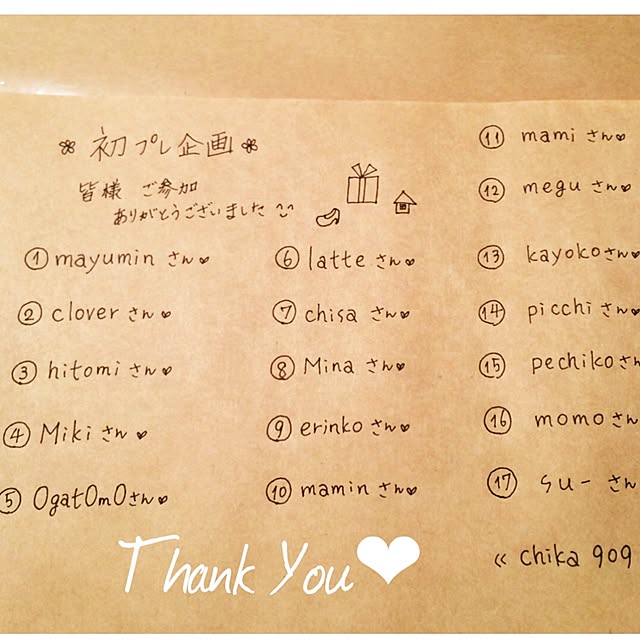 初プレ企画
皆様 ご参加
ありがとうございました
① mayumin さん
② clover さん
③ hitomi さん
④ Miki さん
⑤ OgatOmO さん
⑥ latte さん
⑦ chisa さん
⑧ Mina さん
⑨ erinko さん
⑩ mamin さん
⑪ mami さん
⑫ megu さん
⑬ kayoko さん
⑭ picchi さん
⑮ pechiko さん
⑯ momo さん
⑰ su- さん
《 chika 909
Thank You